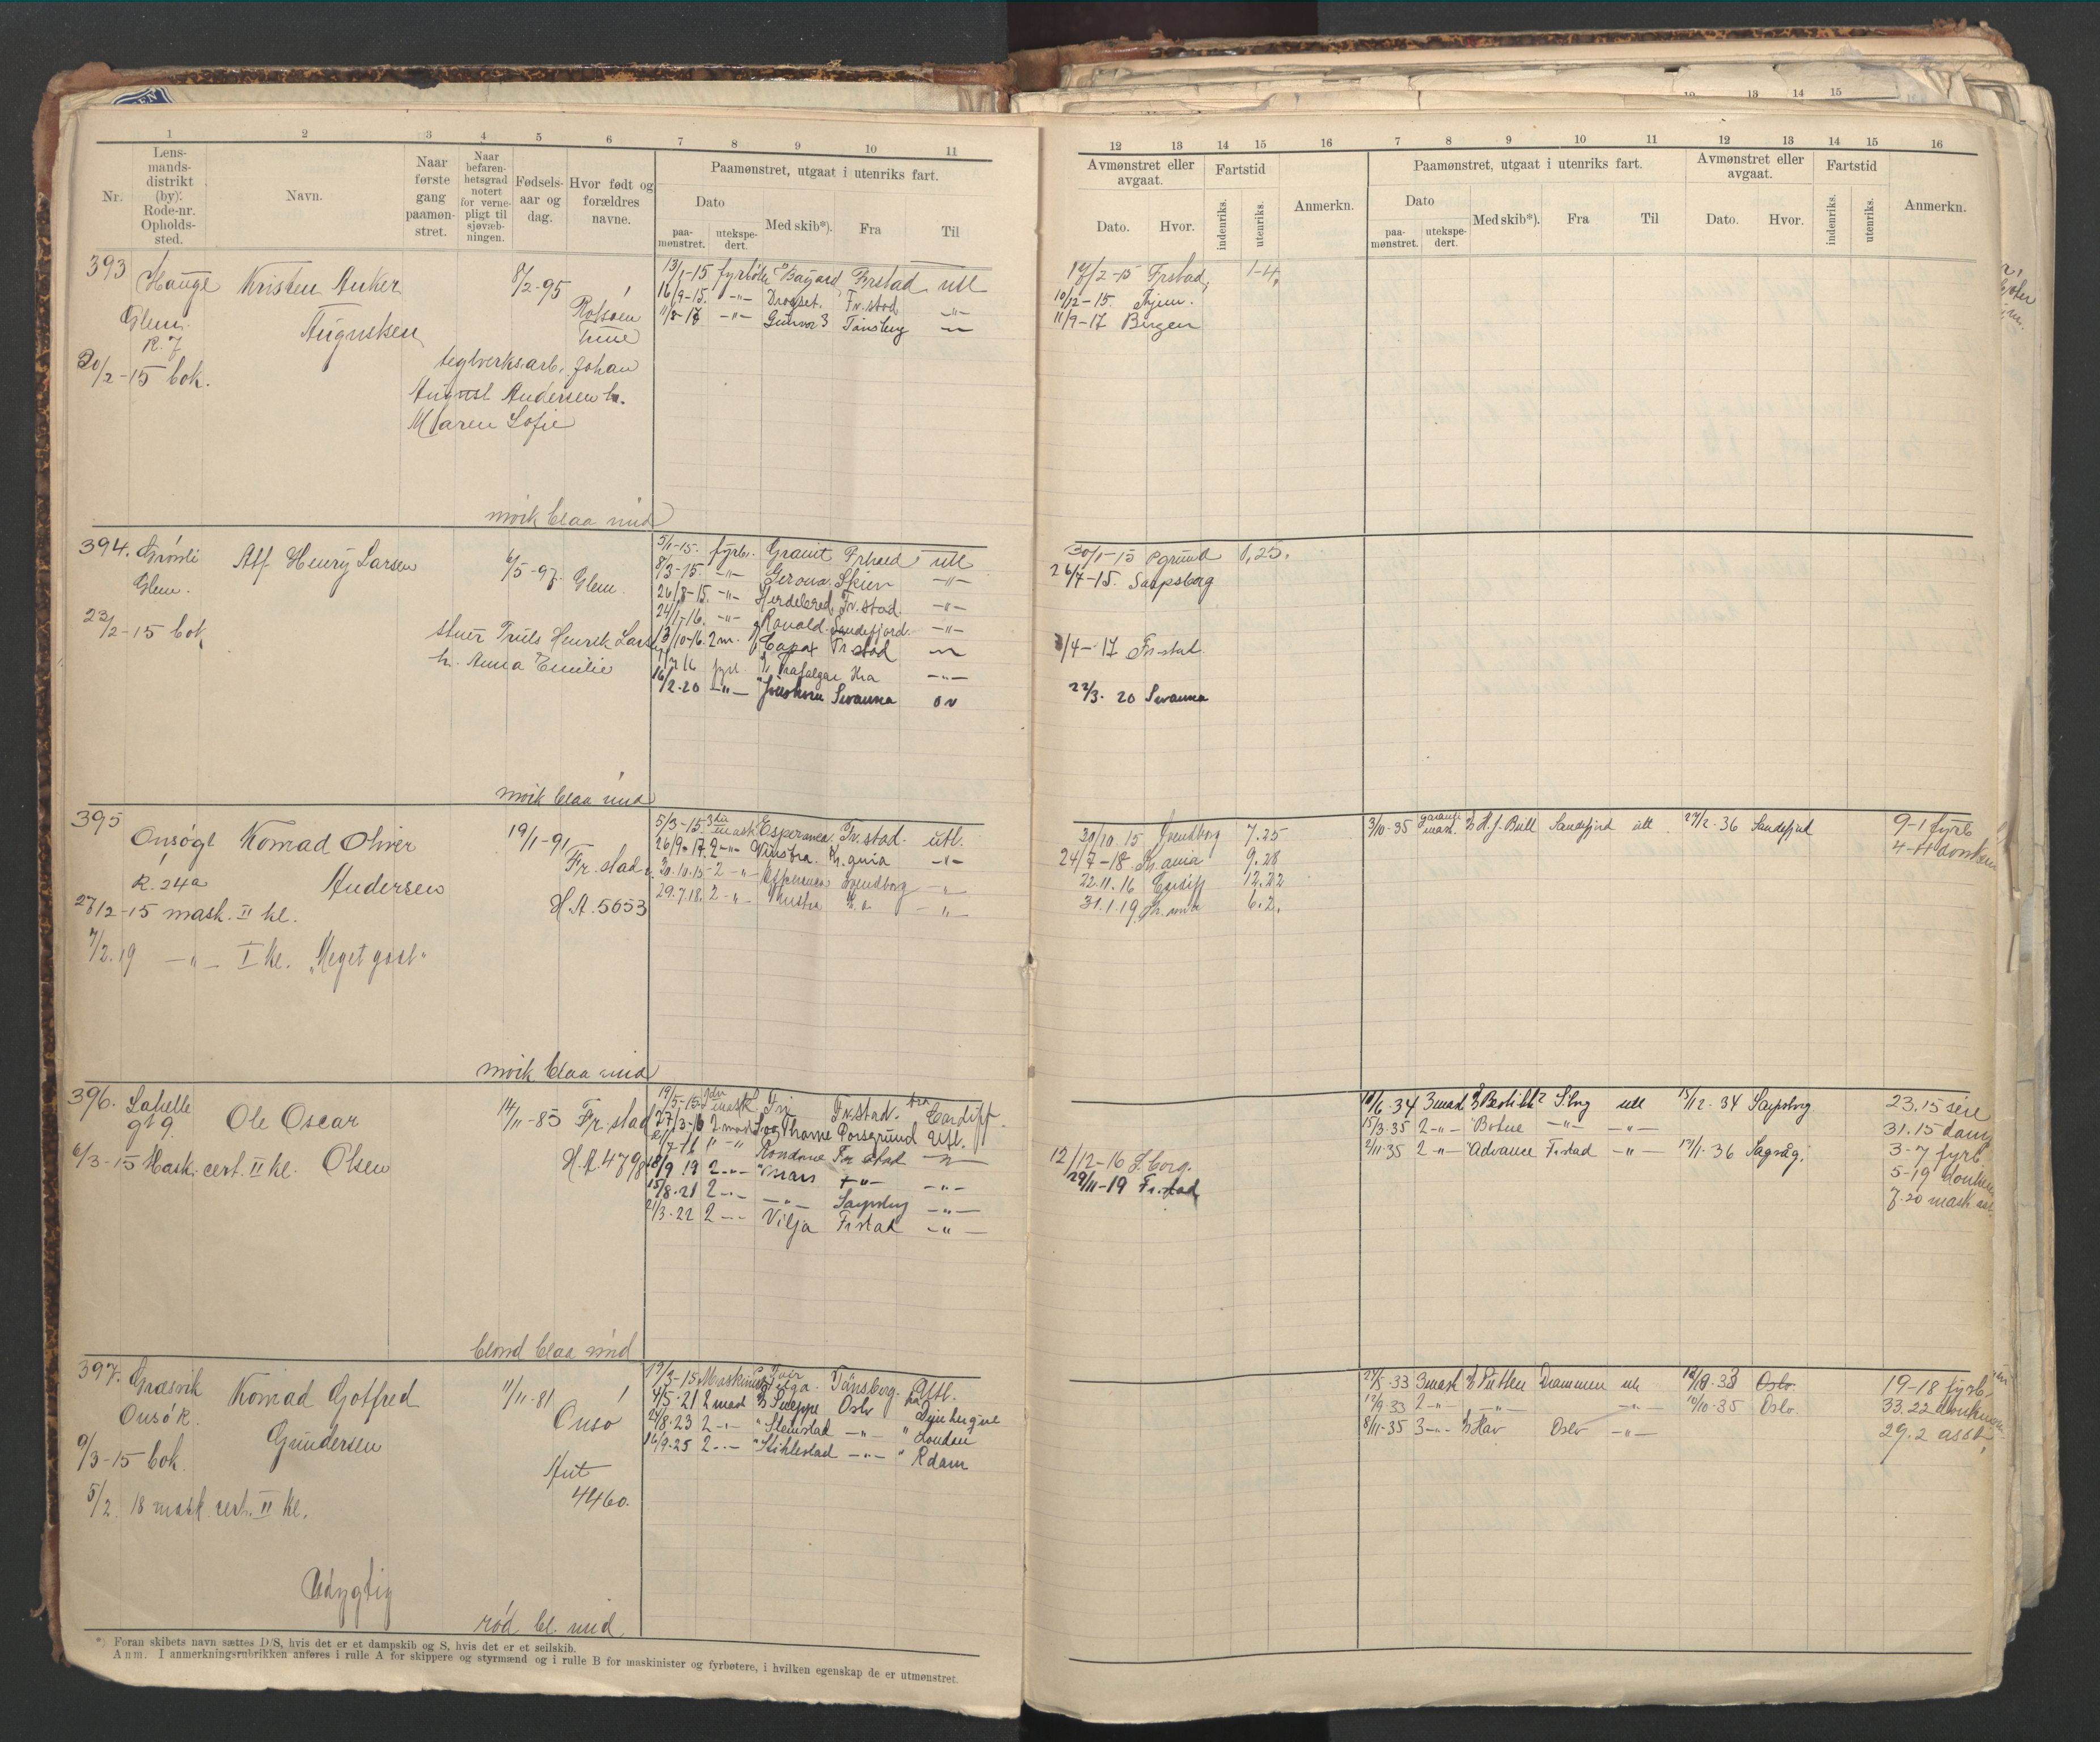 1 2 3 4 5 6 7 8 9 10 11
Nr.
Lensmandsdistrikt (by): Rode-nr. Opholdssted.
Navn.
Naar første gang paamønstret.
Naar befarenhetsgrad notert for vernepligt til sjøvæbningen.
Fødselsaar og dag.
Hvor født og forældres navne.
Paamønstret, utgaat i utenriks fart.
Dato
paamønstret. utekspedert.
Med skib*). Fra Til
12 13 14 15 16 7 8 9 10 11 12 13 14 15 16
Avmønstret eller avgaat. Fartstid
Dato. Hvor. indenriks. utenriks. Anmerkn.
Paamønstret, utgaat i utenriks fart.
Dato
paamønstret. utekspedert. Med skib*). Fra Til
Avmønstret eller avgaat. Fartstid
Dato. Hvor. indenriks. utenriks. Anmerkn.
393 Hauge Kristen Anker 8/2-95
Glem. Augustsen Tune
R. 7
20/2-15 bok.
teglverksarb. Johan
August Andersen h.
Maren Sofie
mørk blaa mid
13/1-15 fyrbøter Bayard Frstad utl
16/9-15. -"- Drogset. Fr.stad -"-
11/8-17 -"- Gunvor 3 Tønsberg -"-
17/2-15 Frstad, 1-4,
10/12-15. Hjem.
11/9-17 Bergen
394. Grønli Alf Henry Larsen 6/5-97. Glem.
Glem.
23/2-15 bok
stuer Truls Henrik Larsen
h. Anna Emilie
mørk blaa mid
5/1-15. fyrb. Granit Frstad utl
8/3-15. -"- Gerona. Skien -"-
26/8-15. -"- Herdebred. Fr.stad. -"-
24/1-16. -"- Ranald. Sandefjord. -"-
13/10-16. 2m. Capax Fr stad
fyrb. Trafalgar Kra -"-
16/2-20 -"- Savanna
30/1-15 Pgrund 1,25.
26/7-15. Sarpsborg
3/4-17 Fr.stad.
22/3. 20 Savanna
395 Onsøgt Konrad Oliver 19/1-91
R. 24a Andersen Fr. stad
27/2-15 mask. II kl. H.A. 5653
7/2.19 -"- I kl. "Meget godt"
mørk blaa mid
5/3-15. 3die mask Esperanca Fr.stad. utl.
26/9-17. 2 -"- Vinstra. Kr.ania -"-
30.10.15- 2 -"- Esperanca Svendborg -"-
29.7.18. 2 -"- Vinstra Kr.a -"-
30/10. 15 Svendborg 7.25
24/7-18. Kr.ania 9.28
22.11.16 Cardiff 12.22
31.1.19 Kr.ania 6.2.
3/10-35 garanti mask. H.J. Bull Sandefjord utl 29/2-36 Sandefjord 9-1 fyrb
4-11 donkm
396. Labelle Ole Oscar 14/11-85 Fr. stad
gt 9. Olsen H.A. 4798
6/3-15 Mask. cert. II kl.
blond blaa mid
19/5-15. 3die mask Tri Fr.stad. fra Cardiff.
27/3-16 2.mask Thorne Porsgrund utl.
Rondane Fr stad
18/9 19 2 -"- Mars -"- -"-
15/8-21 2 -"- -"- Sarpsborg -"-
21/3-22 2 -"- Vilja Frstad -"-
12/12-16 S.borg.
29/11-19 Fr.stad
10/6-34 3 mask S.brg utl 15/12-34 Sarpsborg 23.15 seil
15/3-35 2 -"- Botne -"- -"- 31.15 damp
2/11-35 2 -"- Advance Frstad -"- 17/1-36 Sagvåg. 3-7 fyrb
5-19 donkm
7.20 mask ass.
397. Græsvik Konrad Gotfred 11/11-81
Onsø K. Gundersen Onsø
9/3-15 bok. Aut
5/2 18 mask. cert. II kl. 4460.
Udygtig
rød bl. mid
19/3-15. Maskinist Helga. Tønsberg. utl.
4/5-21 2 mask Sneppe Oslo
24/8-23 2 -"- Stenstad -"- London
16/9-25 2 -"- Stiklestad -"- Rdam
27/5-33 3 mask Putten Drammen utl 18/8-33 Oslo. 19-18 fyrb.
12/9 33 2 -"- -"- -"- 12/10-35 Oslo 33.22 donkm
8/11-35 3 -"- Hav Oslo -"- 29.2 asst
*) Foran skibets navn sættes D/S, hvis det er et dampskib og S, hvis det er et seilskib.
Anm. I anmerkningsrubrikken anføres i rulle A for skippere og styrmænd og i rulle B for maskinister og fyrbøtere, i hvilken egenskap de er utmønstret.